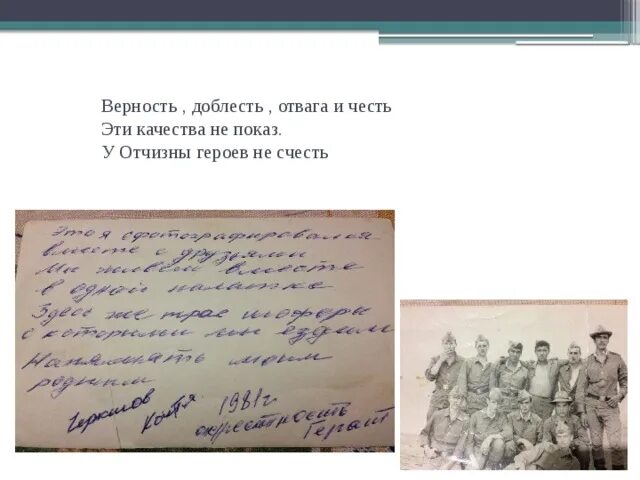 Верность , доблесть , отвага и честь
Эти качества не показ.
У Отчизны героев не счесть
Это я сфотографировался
вместе с друзьями
Мы живем вместе
в одной палатке
Здесь же трое шоферы
с которыми мы ездим
На память моим
родным
Костя 1981г
окрестность
Герат